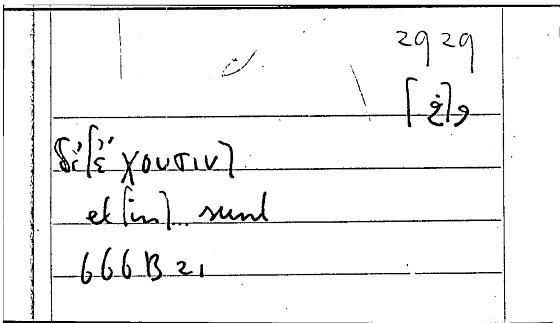 29 29
δὲ [ἔχουσιν]
et [in] sunt
666B 21